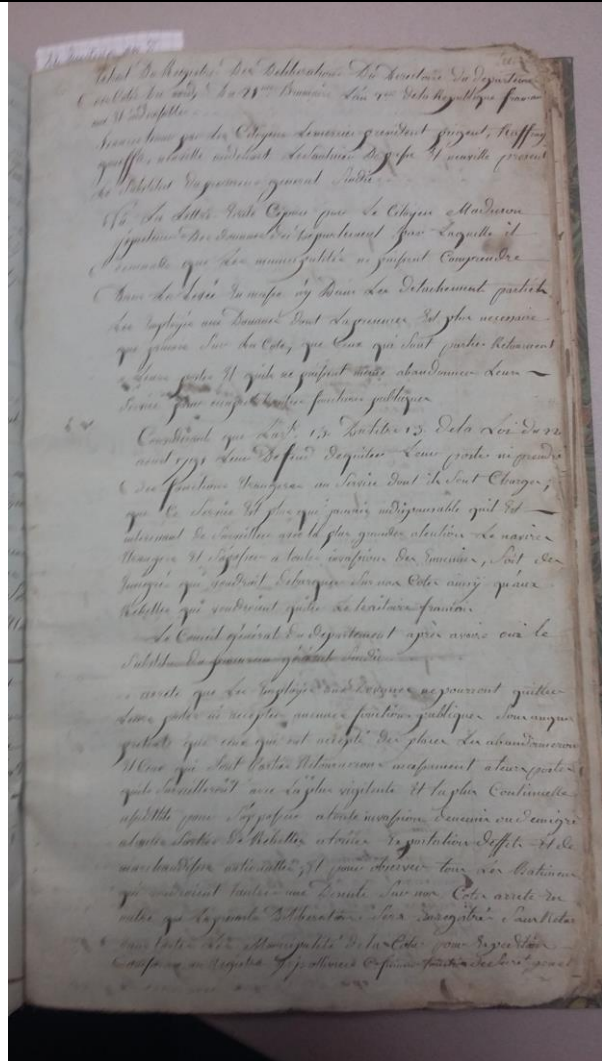 Extrait Du Registre Des Deliberations Du Directoire du departement
Des Cotes du nord, Du 28me Brumaire L'an 2me De la Republique francaise
une Et Indivisible
par Les Citoyens president
Le Substitut Du procureur general Sindic
Vû La Lettre Ecrite par Le Citoyen
Des Douanes Du Departement par Laquelle il
demande que Les municipalités ne puissent Comprendre
Dans La Levée En masse ny Dans Les Detachements particuliers
Les Employés aux Douanes Dont La presence Est plus necessaire
que jamais Sur La Cote, que Ceux qui Sont partis Retournent
a Leurs postes Et qu'ils ne puissent même abandonner Leur
Service pour Des fonctions publiques
Considerant que L'art. 13. Du titre 13. De la Loi du 22
aout 1791 Leur Defend De quitter Leur poste ni prendre
Des fonctions Etrangeres au Service dont ils Sont Chargés,
que Ce Service Est plus que jamais indispensable qu'il Est
interessant De Surveiller avec la plus grande atention Les navires
Etrangers Et S'oposer a toute invasion Des Ennemis, Soit Des
Emigrés qui voudroit Debarquer Sur nos Cotes ainsy qu'aux
Rebelles qui voudroient quitter Le territoire francais
Le Conseil général Du Departement après avoir oui le
Substitut Du procureur général Sindic
arrete que Les Employés aux Douanes ne pourront quitter
Leurs postes ni accepter aucunes fonctions publiques Sous aucun
pretexte que ceux qui ont accepté Des places Les abandonneront
Et Ceux qui Sont Partis Retourneront incessamment a leurs postes
qu'ils Surveilleront avec La plus vigilante Et la plus Continuelle
pour S'opposer a toute invasion d'ennemis ou d'emigrés
a la Sortie De Rebelles a toutes Exportations D'effets Et De
marchandises nationalles, Et pour observer tous Les Batiments
qui voudroient tenter une Descente Sur nos Cotes arrete En
outre que La presente Deliberation Sera Enregistrée
dans toutes Les Municipalités De la Cote pour Expedition
Conforme au Registre